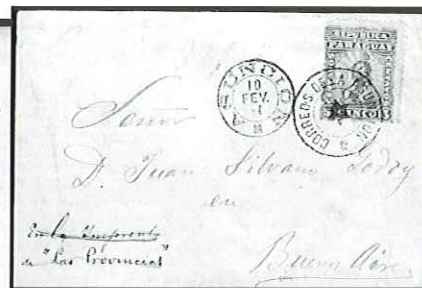 REPUBLICA
PARAGUAY
ASUNCION
10
FEV.
CORREOS DE LA
Señor
D. Juan Silvano Godoy
en
Buenos Aires
En la Imprenta
de "Las Provincias"